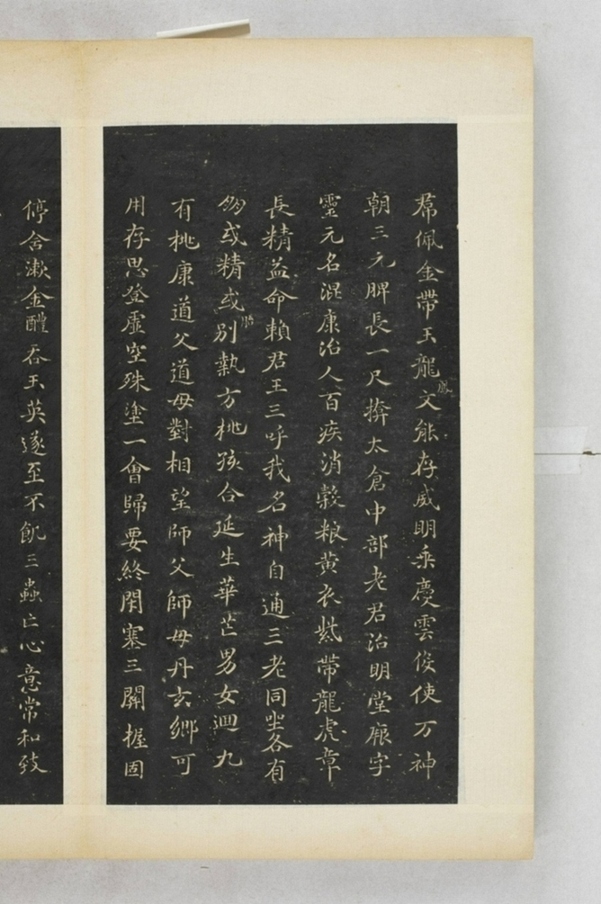 帬佩金帶玉龍鳳文能存威明乘慶雲伇使万神
朝三元脾長一尺掩太倉中部老君治明堂厥字
靈元名混康治人百疾消穀粮黄衣紫帶龍虎章
長精益命賴君王三呼我名神自通三老同坐各有
朋或精或胎別執方桃孩合延生華芒男女迴九
有桃康道父道母對相望師父師母丹玄鄉可
用存思登虛空殊塗一會歸要終閉塞三關握固
停含漱金醴吞玉英遂至不飢三蟲亡心意常和致